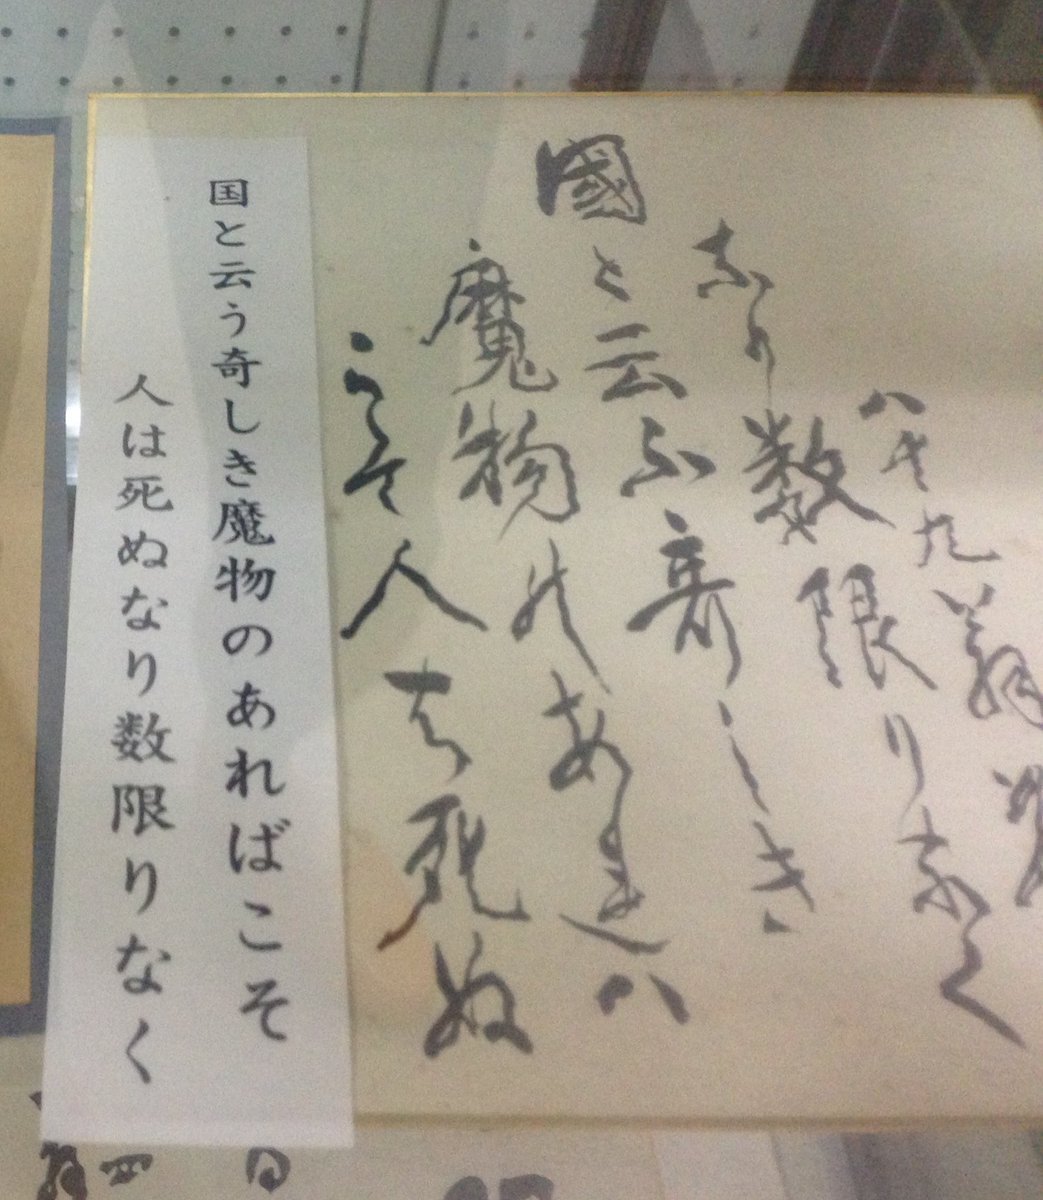 國と云ふ奇しき
魔物のあれハ
こそ人は死ぬ
なり数限りなく
八十九翁
国と云う奇しき魔物のあればこそ
人は死ぬなり数限りなく